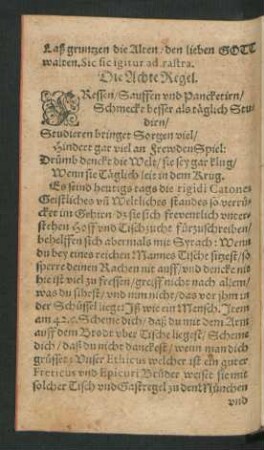 Laß gruntzen die Alten / den lieben GOTT
walten. Sic sic igitur ad rastra.
Die Achte Regel.
FRessen / Sauffen vnd Pancketiern /
Schmeckt besser als täglich Stu-
dieren /
Studieren bringet Sorgen viel /
Hindert gar viel an FrewdenSpiel:
Drümb dencke die Welt / sie sey gar klug /
Wenn sie Täglich leit in dem Krug.
Es seind heutigs tags die rigidi Catones
Geistliches vñ Weltliches standes so verrü-
cket im Gehirn / dz sie sich freventlich vnter-
stehen Hoff vnd Tischzucht fürzuschreiben /
behelffen sich abermals mit Syrach: Wenn
du bey eines reichen Mannes Tische sitzest / so
sperre deinen Rachen nit auff / vnd dencke nit
hie ist viel zu fressen / greiff nicht nach allem /
was du sihest / vnd nim nicht / das vor jhm in
der Schüssel lieget Iß wie ein Mensch. Item
am 42. Scheme dich / daß du mit dem Arm
auff dem Brodt vber Tische liegest / Scheme
dich / daß du nicht danckest / wenn man dich
grüsset / Vnser Ethicus welcher ist ein guter
Freticus vnd Epicuri Brüder weiset sie mit
solcher Tisch vnd Gastregel zu den München
vnd